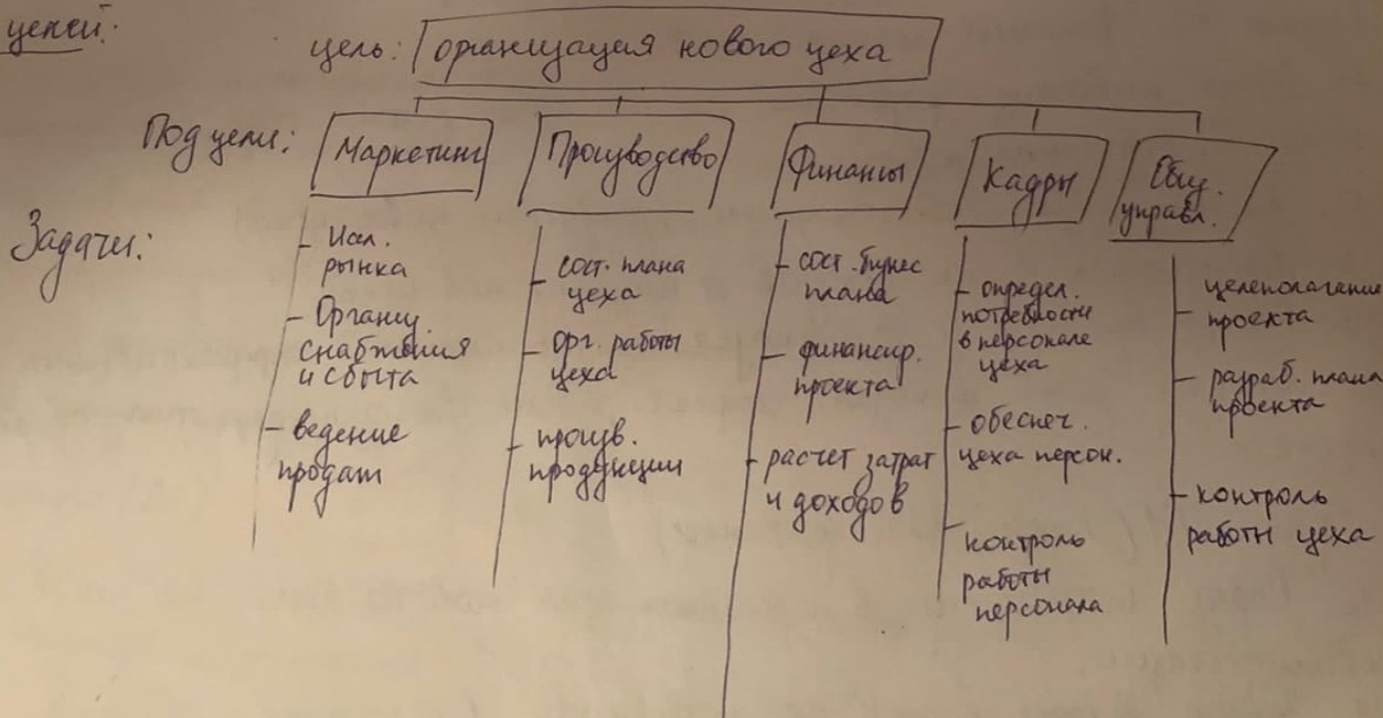 целей:
цель: организация нового цеха
Под цели:
Маркетинг
Производство
Финансы
Кадры
Общ.
управл.
Задачи:
- Исл.
рынка
- Органиц.
снабжения
и сбыта
- ведение
продаж
- сост. плана
цеха
- орг. работы
цеха
- произв.
продукции
- сост. бизнес
плана
- финансир.
проекта
- расчет затрат
и доходов
- определ.
потребности
в персонале
цеха
- обеспеч.
цеха персон.
- контроль
работы
персонала
- целеполагание
проекта
- разраб. плана
проекта
- контроль
работы цеха